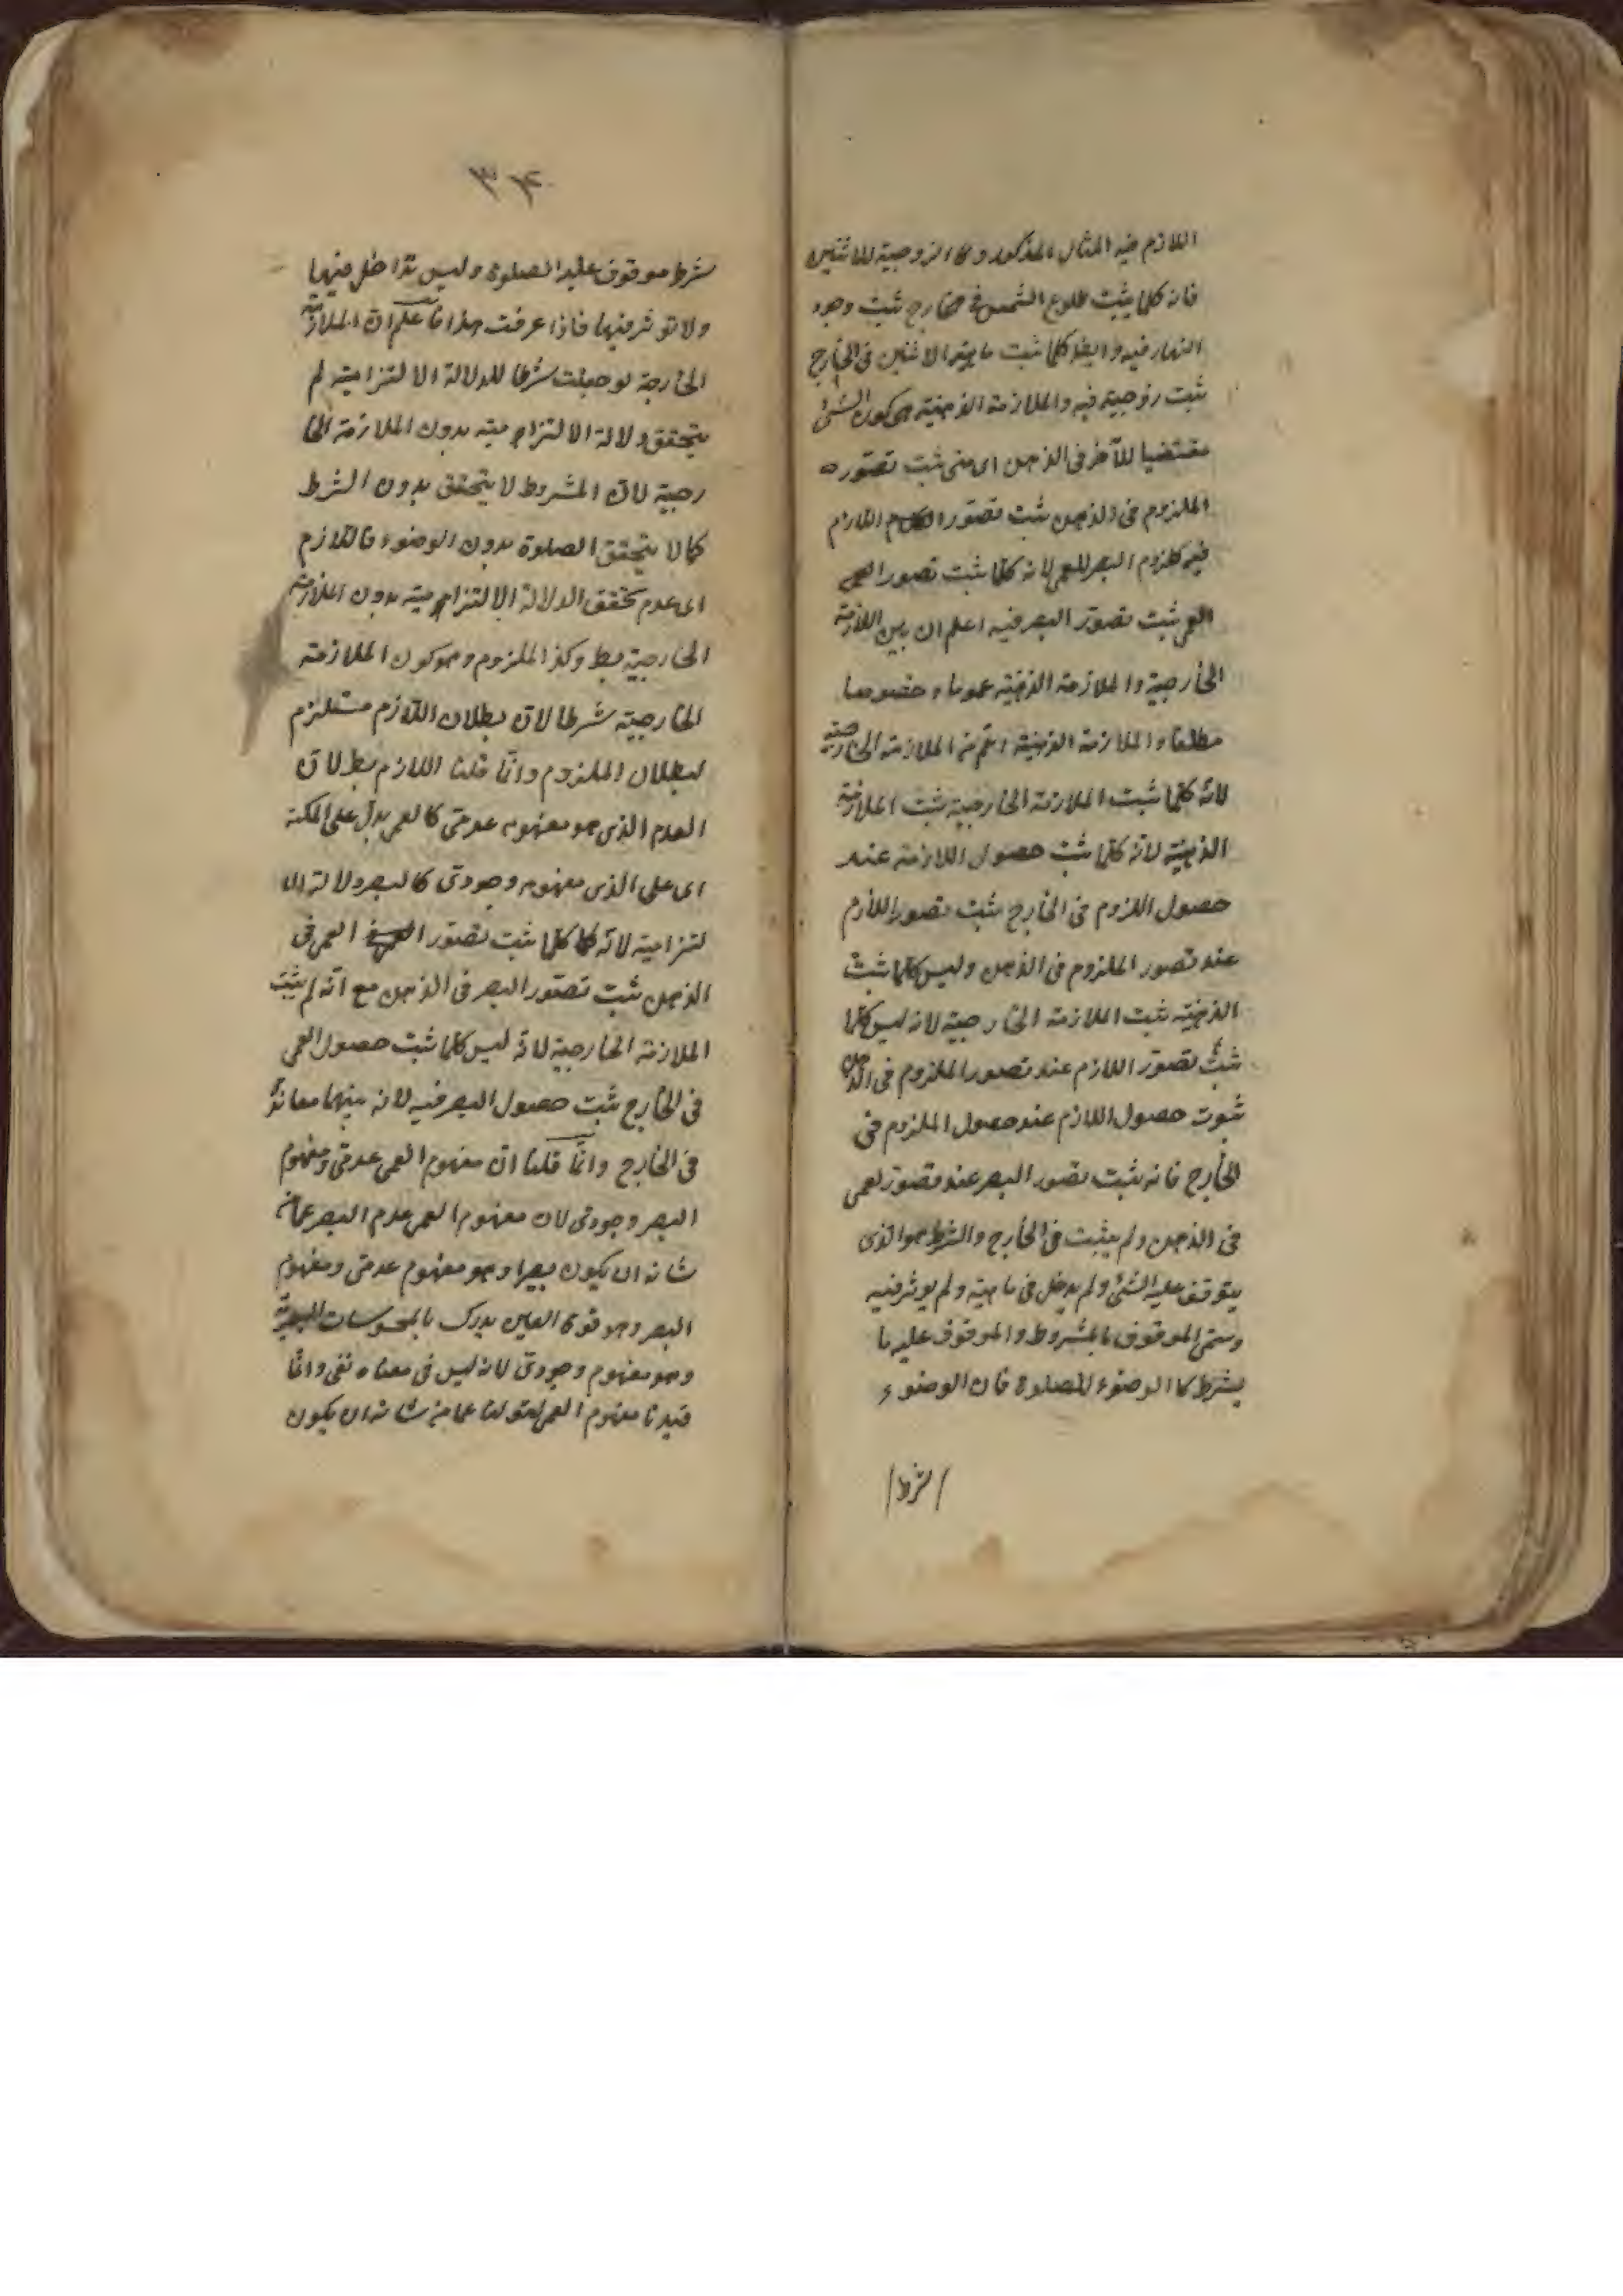 اللازم فيه المثال المذكور وكالزوجية للاثنين
فانه كلما يثبت طلوع الشمس في خارج ثبت وجود
النهار فيه وايضا كلما ثبت ماهية الاثنين في الخارج
ثبت زوجية فيه والملازمة الذهنية هي كون الشئ
مقتضيا للآخر في الذهن اى متى ثبت تصوره
الملزوم في الذهن ثبت تصور اللازم
فيه كلزوم البصر للعمى لانه كلما ثبت تصور العمى
العمى ثبت تصور البصر فيه اعلم ان بين الملازمة
الخارجية والملازمة الذهنية عموما وخصوصا
مطلقا والملازمة الذهنية اعم من الملازمة الخارجية
لانه كلما ثبت الملازمة الخارجية ثبت الملازمة
الذهنية لانه كلما ثبت حصول اللازمة عند
حصول اللزوم في الخارج ثبت تصور اللازم
عند تصور الملزوم في الذهن وليس كلما ثبت
الذهنية ثبت الملازمة الخارجية لانه ليس كلما
ثبت تصور اللازم عند تصور الملزوم في الذهن
ثبوت حصول اللازم عند حصول الملزوم في
الخارج فانه ثبت تصور البصر عند تصور لعمى
في الذهن ولم يثبت في الخارج والشرط هو الذى
يتوقف عليه الشئ ولم يدخل في ماهيته ولم يوثر فيه
وسمى الموقوف بالمشروط والموقوف عليه با
بشرط كا الوضوء للصلوة فان الوضوء
/شرط/
٣٤
شرط موقوف عليه الصلوة وليس تداخل فيها
ولا توثر فيها فاذا عرفت هذا فاعلم ان الملازمة
الخارجة لو جعلت شرطا للدلالة الالتزامية لم
يتحقق دلالة الالتزامية بدون الملازمة الخا
رجية لان المشروط لا يتحقق بدون الشرط
كما لا يتحقق الصلوة بدون الوضوء فاللازم
اى عدم تحقق الدلالة الالتزامية بدون الملازمة
الخارجية بط وكذا الملزوم وهو كون الملازمة
الخارجية شرطا لان بطلان اللازم مستلزم
لبطلان الملزوم وانما قلنا اللازم بط لان
العدم الذى هو مفهومه عدمى كالعمى يدل على الملكة
اى على الذى مفهومه وجودى كالبصر دلالة الا
لتزامية لانه كلما ثبت تصور العمى في
الذهن ثبت تصور البصر في الذهن مع انه لم يثبت
الملازمة الخارجية لانه ليس كلما ثبت حصول العمى
في الخارج ثبت حصول البصر فيه لانه بينهما معاندة
في الخارج وانما قلنا ان مفهوم العمى عدمى ومفهوم
البصر وجودى لان مفهوم العمى عدم البصر عما من
شانه ان يكون بصيرا وهو مفهوم عدمى ومفهوم
البصر وهو قوة العين يدرك بالمحسوسات البصرية
وهو مفهوم وجودى لانه ليس في معناه نفى وانما
قيدنا مفهوم العمى بقولنا عما من شانه ان يكون